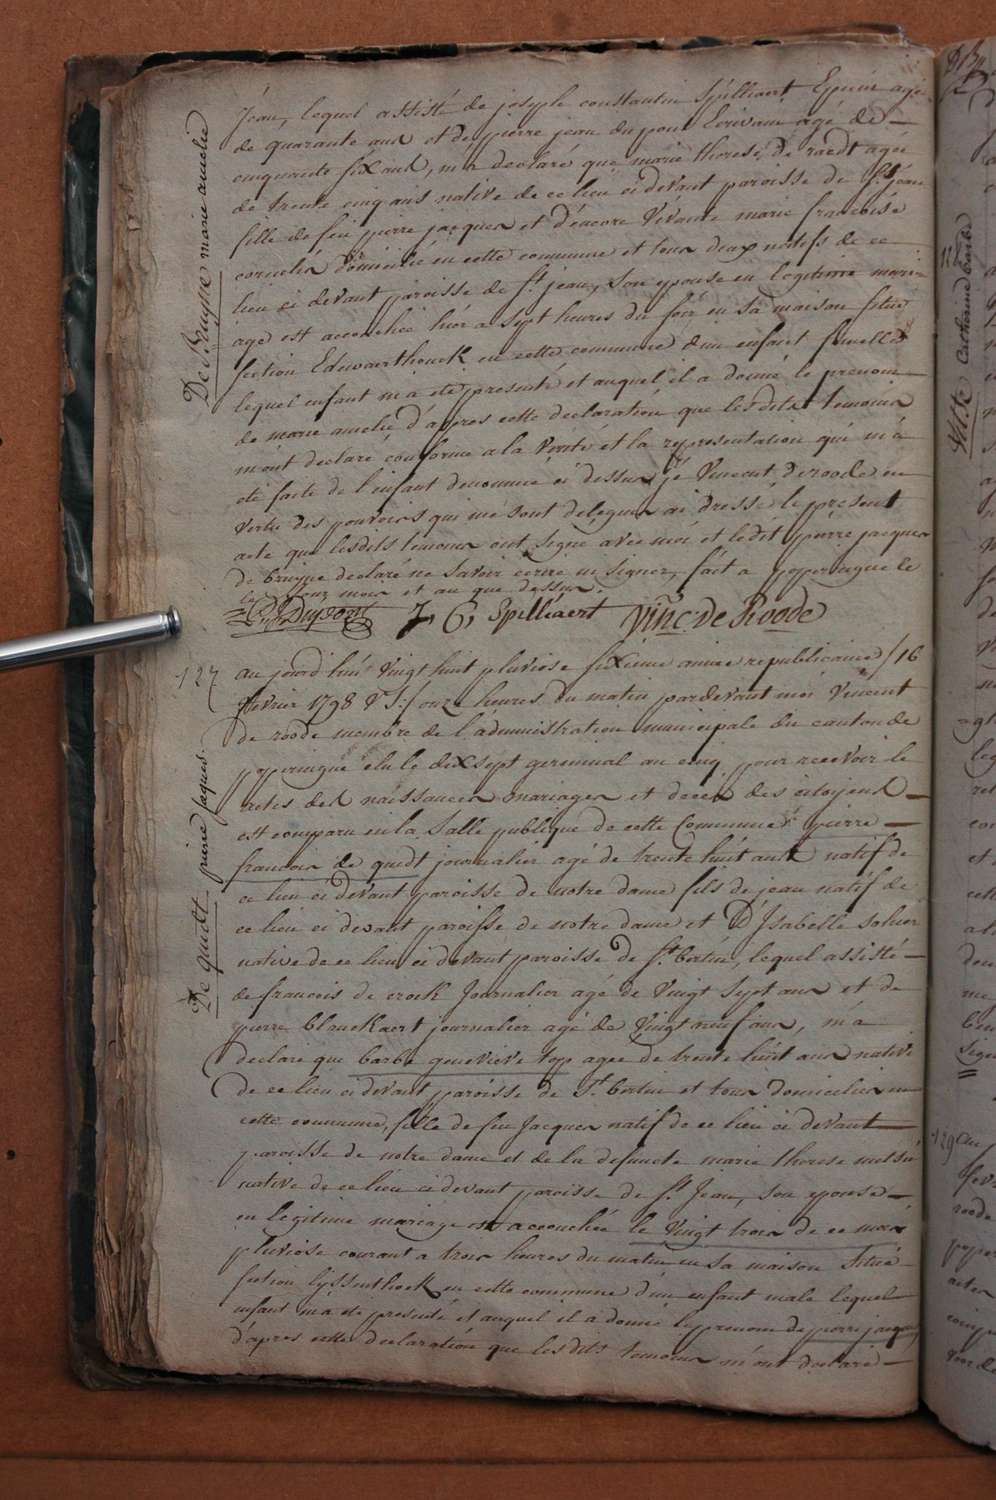 De Bruyne marie amelie
Jean, lequel assisté de joseph constantin Spilliaert Epicier agé
de quarante ans et de pierre jean dupont Ecrivain âgé de
cinquante six ans, m'a declaré que marie therese de raedt agee
de trente cinq ans native de ce lieu ci devant paroisse de St. jean
fille de feu pierre jacques et d'encore vivante marie francoise
cornelis domiciliée en cette commune et tous deux natifs de ce
lieu ci devant paroisse de St jean, son epouse en legitime mari=
age est accouchée hier a sept heures du soir en sa maison situe
section Edewaerthouck en cette commune d'un enfant femelle
lequel enfant m'a eté presenté et auquel il a donné le prenom
de marie amelie d'apres cette declaration que lesdits temoins
m'ont declaré conforme a la verité et la representation qui m'a
eté faite de l'enfant denommé ci dessus, je Vincent deroode en
vertu des pouvoirs qui me sont delegues ai dressé le present
acte que lesdits temoins ont signé avec moi et ledit pierre jacques
de bruyne declaré ne savoir ecrire ni signer, fait a poperingue le
jour mois et an que dessus.
P J Dupont J, C, Spilliaert Vinc: de Roode
127
De quidt pierre jaques.
au jourd'hui vingt huit pluviose sixieme annee republicaine /16
fevrier 1798 V S:/ onze heures du matin pardevant moi Vincent
de roode membre de l'administration municipale du canton de
poperingue elu le dixsept germinal an cinq pour recevoir le
actes des naissances mariages et deces des citoyens
est comparu en la Salle publique de cette Commune pierre
francois de quidt journalier agé de trente huit ans natif de
ce lieu ci devant paroisse de notre dame fils de jean natif de
ce lieu ci devant paroisse de notre dame et D'Isabelle sohier
native de ce lieu ci devant paroisse de St. bertin, lequel assisté
de francois de crock Journalier agé de Vingt Sept ans et de
pierre blanckaert journalier agé de vingt neuf ans, m'a
declaré que barbe genevieve top agee de trente huit ans native
de ce lieu ci devant paroisse de St bertin et tous domicilies en
cette commune, fille de feu Jacques natif de ce lieu ci devant
paroisse de notre dame et de la defuncte marie therese
native de ce lieu ci devant paroisse de St Jean, son epouse
en legitime mariage est accouchée le vingt trois de ce mois
pluviose courant a trois heures du matin en sa maison situé
section lyssenthoek en cette commune d'un enfant male lequel
enfant m'a eté presenté et auquel il a donné le prenom de pierre jacques,
d'apres cette declaration que les dits temoins m'ont declaré
Catherine barbe
129